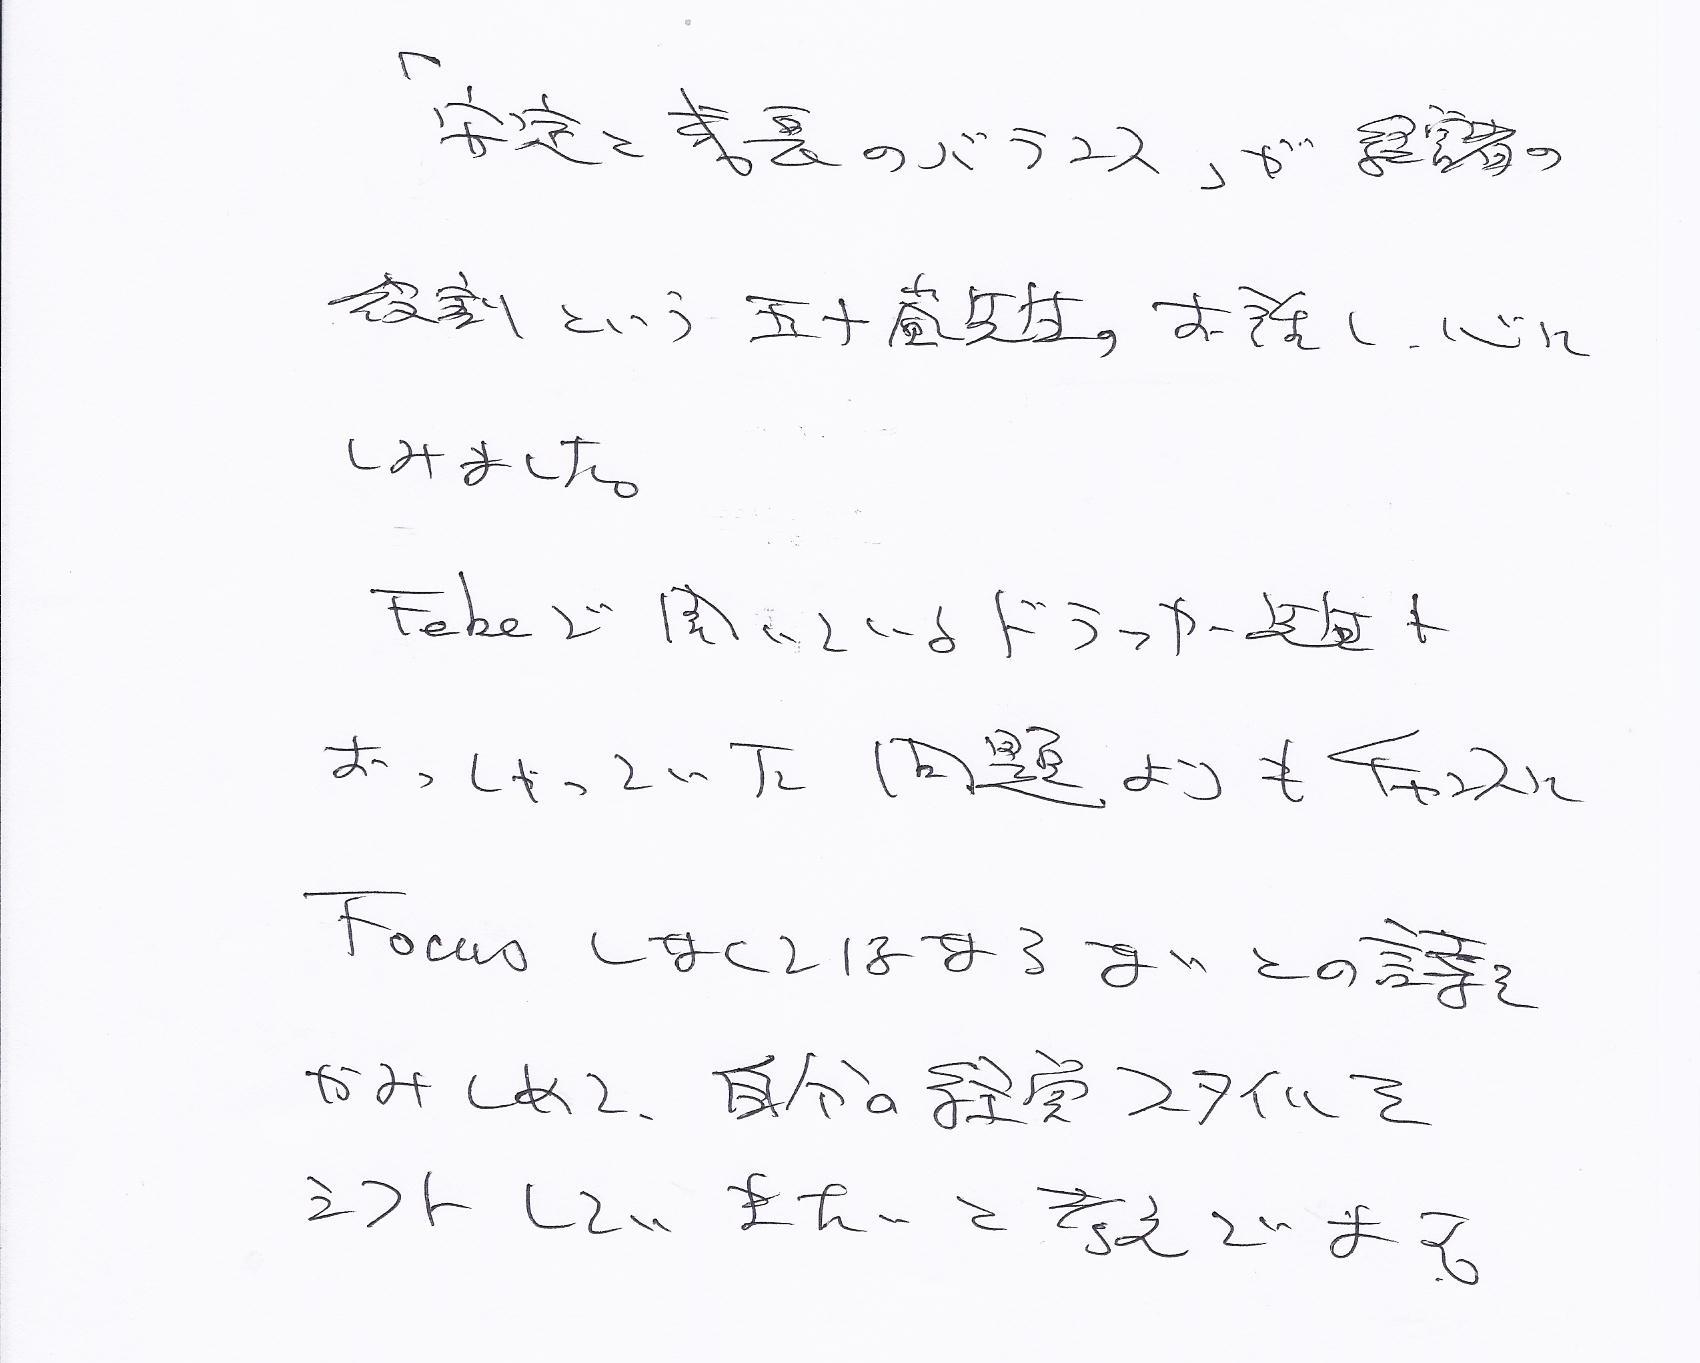 「安定と成長のバランス」が経営者の
役割という五十嵐先生のお話し、心に
しみました。
Febeで聞いているドラッカー先生も
おっしゃっていた問題よりもチャンスに
Focusしなくてはならないとの言葉を
かみしめて、自分の経営スタイルを
シフトしていきたいと考えています。